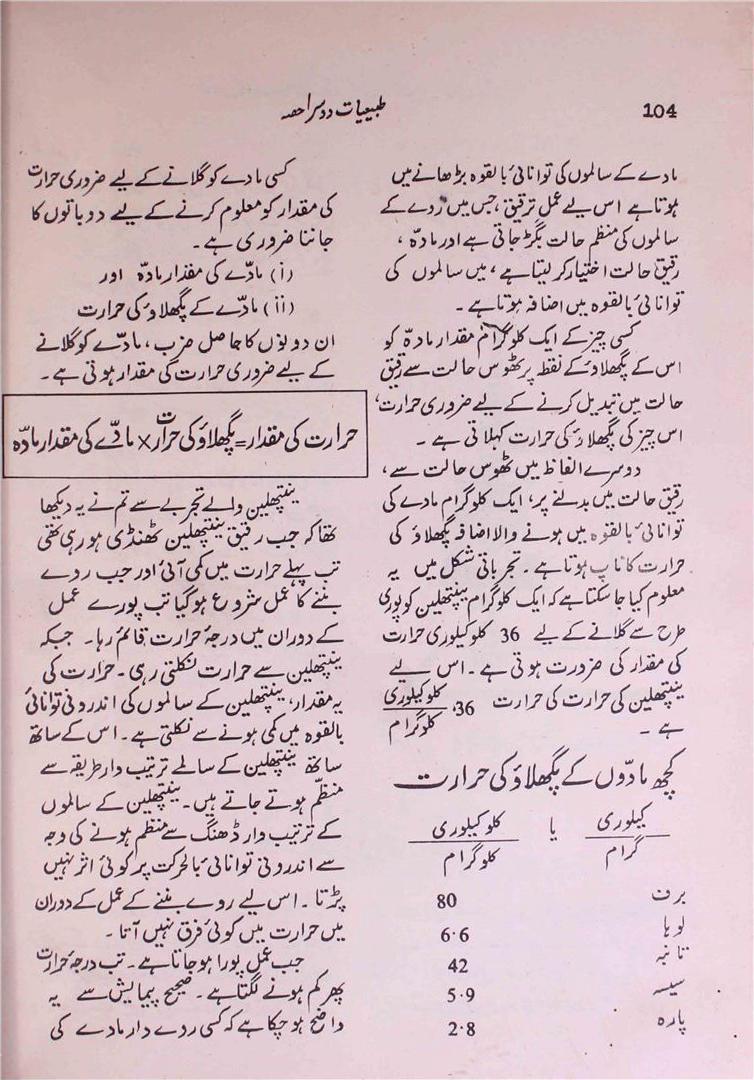 104
طبیعیات دوسرا حصہ
مادے کے سالموں کی توانائی بالقوہ بڑھانے میں
ہوتا ہے اس لیے عمل ترقیق، جس میں رَدے کے
سالموں کی منظم حالت بگڑ جاتی ہے اور مادّہ،
رقیق حالت اختیار کر لیتا ہے، میں سالموں کی
توانائی بالقوہ میں اضافہ ہوتا ہے۔
کسی چیز کے ایک کلوگرام مقدار مادّہ کو
اس کے پگھلاؤ کے نقطہ پر ٹھوس حالت سے رقیق
حالت میں تبدیل کرنے کے لیے ضروری حرارت،
اس چیز کی پگھلاؤ کی حرارت کہلاتی ہے۔
دوسرے الفاظ میں ٹھوس حالت سے،
رقیق حالت میں بدلنے پر، ایک کلوگرام مادے کی
توانائی بالقوہ میں ہونے والا اضافہ پگھلاؤ کی
حرارت کا ناپ ہوتا ہے۔ تجرباتی شکل میں یہ
معلوم کیا جا سکتا ہے کہ ایک کلوگرام نیپتھلین کو پوری
طرح سے گلانے کے لیے 36 کلوکیلوری حرارت
کی مقدار کی ضرورت ہوتی ہے۔ اس لیے
نیپتھلین کی حرارت کی حرارت 36، کلوکیلوری / کلوگرام
ہے۔
کچھ مادّوں کے پگھلاؤ کی حرارت
کیلوری / گرام یا کلوکیلوری / کلوگرام
برف 80
لوہا 6·6
تانبہ 42
سیسہ 5·9
پارہ 2·8
کسی مادے کو گلانے کے لیے ضروری حرارت
کی مقدار کو معلوم کرنے کے لیے دو باتوں کا
جاننا ضروری ہے۔
(i) مادّے کی مقدار مادّہ اور
(ii) مادّے کے پگھلاؤ کی حرارت
ان دونوں کا حاصل ضرب، مادّے کو گلانے
کے لیے ضروری حرارت کی مقدار ہوتی ہے۔
حرارت کی مقدار = پگھلاؤ کی حرارت × مادّے کی مقدار مادّہ
نیپتھلین والے تجربے سے تم نے یہ دیکھا
تھا کہ جب رقیق نیپتھلین ٹھنڈی ہو رہی تھی
تب پہلے حرارت میں کمی آئی اور جب ردے
بننے کا عمل شروع ہو گیا تب پورے عمل
کے دوران میں درجۂ حرارت قائم رہا۔ جبکہ
نیپتھلین سے حرارت نکلتی رہی۔ حرارت کی
یہ مقدار، نیپتھلین کے سالموں کی اندرونی توانائی
بالقوہ میں کمی ہونے سے نکلتی ہے۔ اس کے ساتھ
ساتھ نیپتھلین کے سالمے ترتیب وار طریقہ سے
منظّم ہوتے جاتے ہیں۔ نیپتھلین کے سالموں
کے ترتیب وار ڈھنگ سے منظم ہونے کی وجہ
سے اندرونی توانائی بالحرکت پر کوئی اثر نہیں
پڑتا۔ اس لیے روے بننے کے عمل کے دوران
میں حرارت میں کوئی فرق نہیں آتا۔
جب عمل پورا ہو جاتا ہے۔ تب درجۂ حرارت
پھر کم ہونے لگتا ہے۔ صحیح پیمایش سے یہ
واضح ہو چکا ہے کہ کسی ردے دار مادے کی